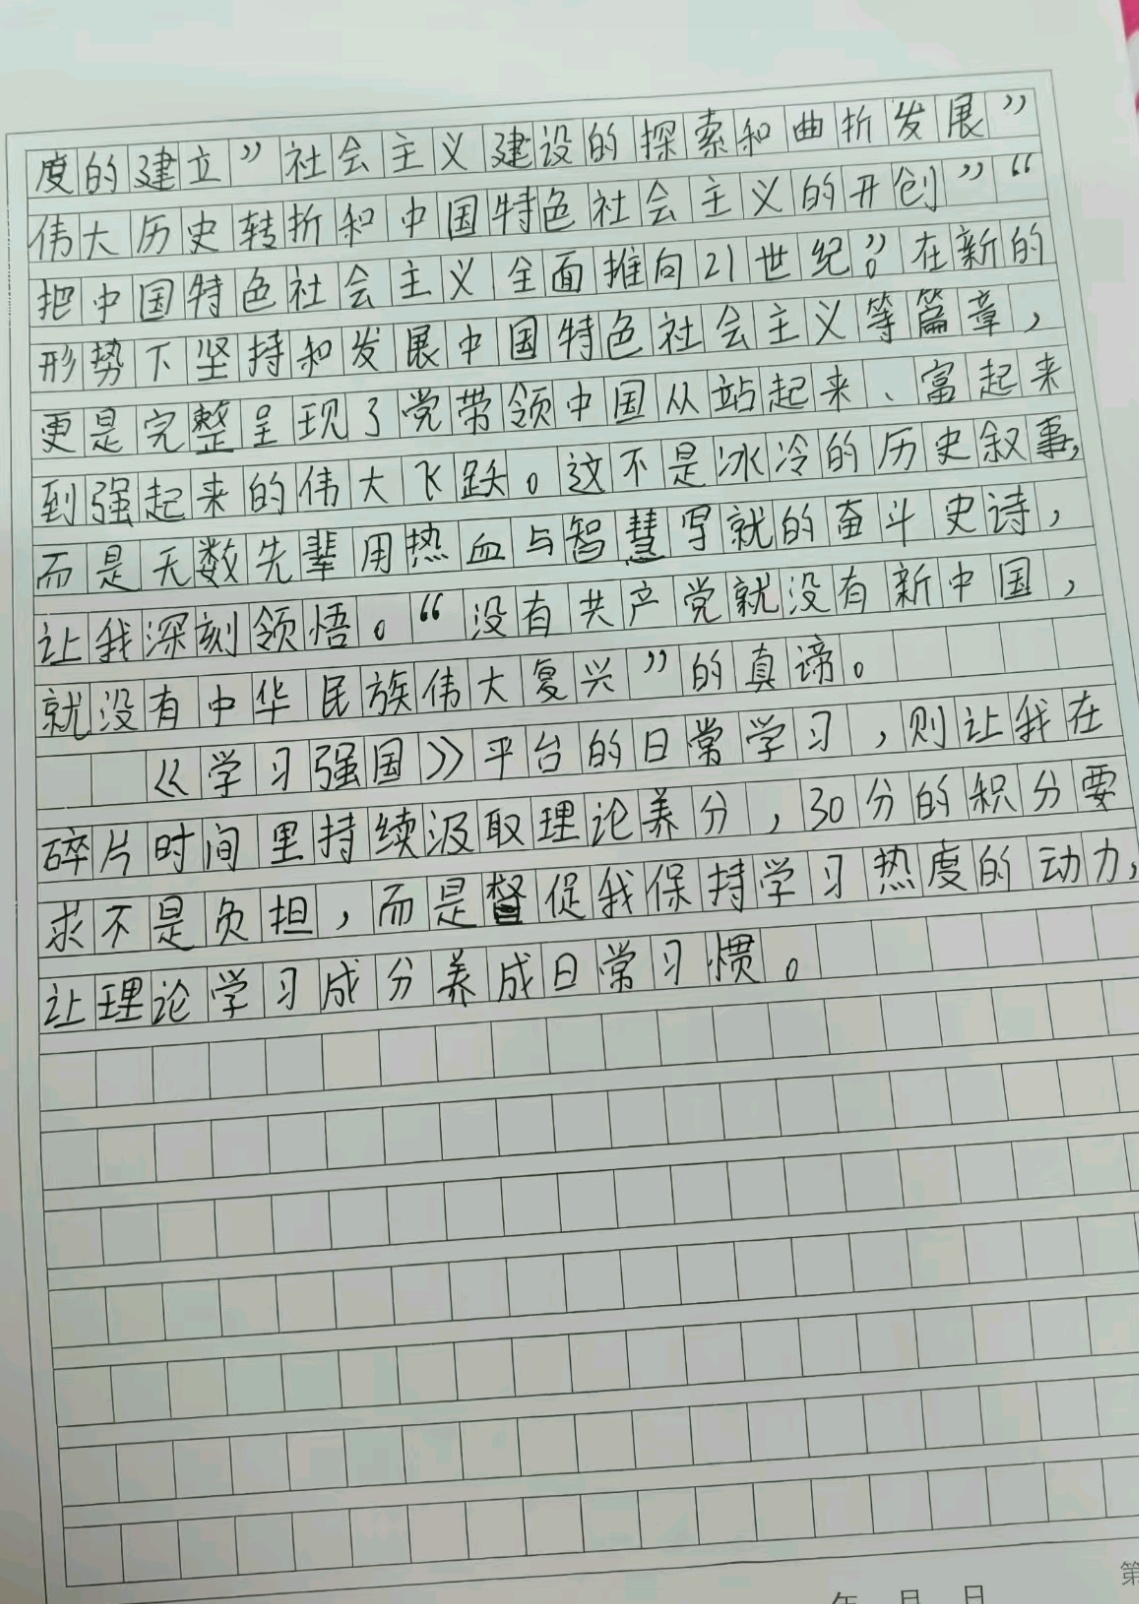 度的建立”社会主义建设的探索和曲折发展”
伟大历史转折和中国特色社会主义的开创”“
把中国特色社会主义全面推向21世纪”。在新的
形势下坚持和发展中国特色社会主义等篇章，
更是完整呈现了党带领中国从站起来、富起来
到强起来的伟大飞跃。这不是冰冷的历史叙事，
而是无数先辈用热血与智慧写就的奋斗史诗，
让我深刻领悟。“没有共产党就没有新中国，
就没有中华民族伟大复兴”的真谛。
《学习强国》平台的日常学习，则让我在
碎片时间里持续汲取理论养分，30分的积分要
求不是负担，而是督促我保持学习热度的动力，
让理论学习成分养成日常习惯。
第
年 月 日